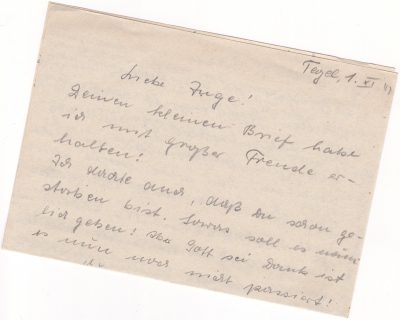 Tegel, 1. XI
Liebe Inge!
Deinen kleinen Brief habe
ich mit großer Freude er-
halten!
Ich dachte auch, daß Du schon ge-
storben bist. Sowas soll es näm-
lich geben! Aber Gott sei Dank ist
es nun noch nicht passiert!